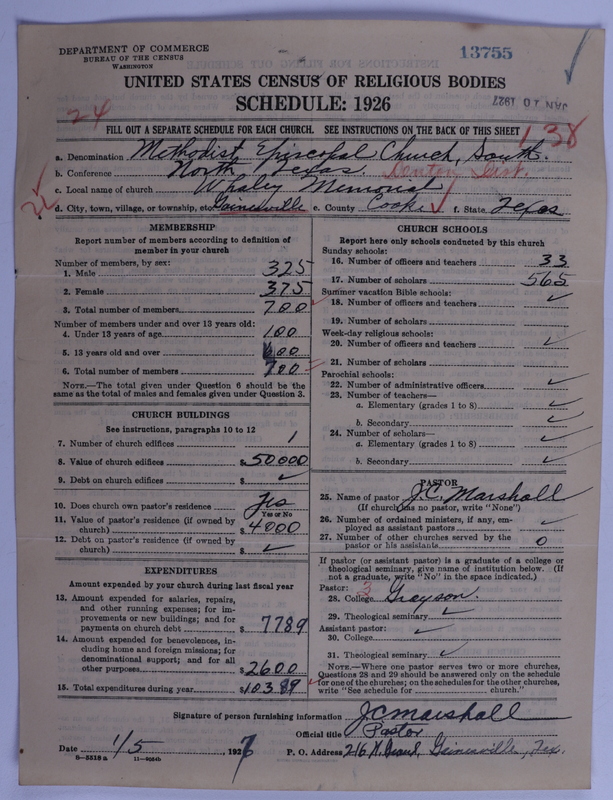 DEPARTMENT OF COMMERCE
BUREAU OF THE CENSUS
WASHINGTON
13755
UNITED STATES CENSUS OF RELIGIOUS BODIES
SCHEDULE: 1926
JAN 10 1927
24
FILL OUT A SEPARATE SCHEDULE FOR EACH CHURCH. SEE INSTRUCTIONS ON THE BACK OF THIS SHEET
138
a. Denomination Methodist Episcopal Church, South.
b. Conference North Texas Denton Dist.
c. Local name of church Whaley Memorial
d. City, town, village, or township, etc. Gainesville e. County Cooke f. State Texas
MEMBERSHIP
Report number of members according to definition of member in your church
Number of members, by sex:
1. Male 325
2. Female 375
3. Total number of members 700
Number of members under and over 13 years old:
4. Under 13 years of age 100
5. 13 years old and over 600
6. Total number of members 700
NOTE.—The total given under Question 6 should be the
same as the total of males and females given under Question 3.
CHURCH BUILDINGS
See instructions, paragraphs 10 to 12
7. Number of church edifices 1
8. Value of church edifices $50000
9. Debt on church edifices $ ✓
10. Does church own pastor's residence Yes
Yes or No
11. Value of pastor's residence (if owned by
church) $4000
12. Debt on pastor's residence (if owned by
church) $ ✓
EXPENDITURES
Amount expended by your church during last fiscal year
13. Amount expended for salaries, repairs,
and other running expenses; for im-
provements or new buildings; and for
payments on church debt $ 7789
14. Amount expended for benevolences, in-
cluding home and foreign missions; for
denominational support; and for all
other purposes $2600
15. Total expenditures during year $10389
CHURCH SCHOOLS
Report here only schools conducted by this church
Sunday schools:
16. Number of officers and teachers 33
17. Number of scholars 565
Summer vacation Bible schools:
18. Number of officers and teachers ✓
19. Number of scholars
Week-day religious schools:
20. Number of officers and teachers ✓
21. Number of scholars
Parochial schools:
22. Number of administrative officers ✓
23. Number of teachers—
a. Elementary (grades 1 to 8) ✓
b. Secondary ✓
24. Number of scholars—
a. Elementary (grades 1 to 8) ✓
b. Secondary ✓
PASTOR
25. Name of pastor J.C. Marshall
(If church has no pastor, write "None")
26. Number of ordained ministers, if any, em-
ployed as assistant pastors ✓
27. Number of other churches served by the
pastor or his assistants 0
If pastor (or assistant pastor) is a graduate of a college or
theological seminary, give name of institution below. (If
not a graduate, write "No" in the space indicated.)
Pastor: 3
28. College Grayson.
29. Theological seminary ✓
Assistant pastor: ✓
30. College
31. Theological seminary ✓
NOTE.—Where one pastor serves two or more churches,
Questions 28 and 29 should be answered only on the schedule
for one of the churches; on the schedules for the other churches,
write "See schedule for church."
Signature of person furnishing information J C Marshall
Official title Pastor
Date 1/5 1927 P. O. Address 216 N. Gainesville, Tex.
8—5518a 11—9064b